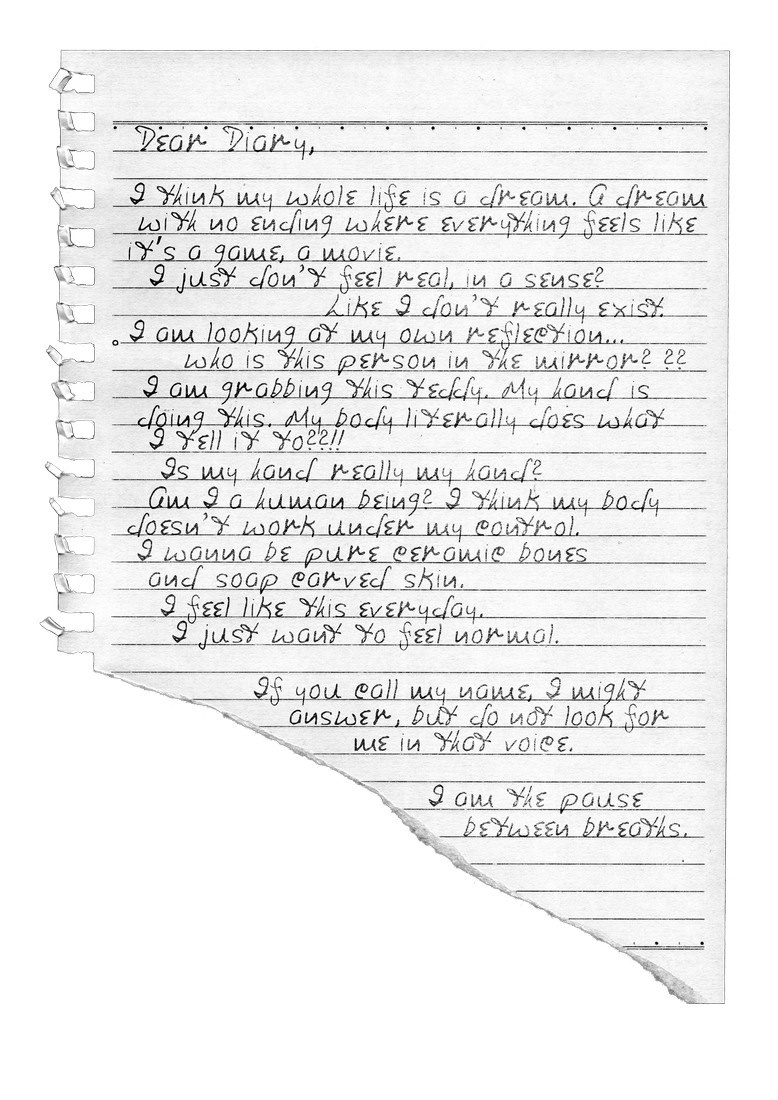 Dear Diary,
I think my whole life is a dream. A dream
with no ending where everything feels like
it's a game, a movie.
I just don't feel real, in a sense?
Like I don't really exist.
I am looking at my own reflection...
who is this person in the mirror? ??
I am grabbing this teddy. My hand is
doing this. My body literally does what
I tell it to??!!
Is my hand really my hand?
Am I a human being? I think my body
doesn't work under my control.
I wanna be pure ceramic bones
and soap carved skin.
I feel like this everyday.
I just want to feel normal.
If you call my name, I might
answer, but do not look for
me in that voice.
I am the pause
between breaths.